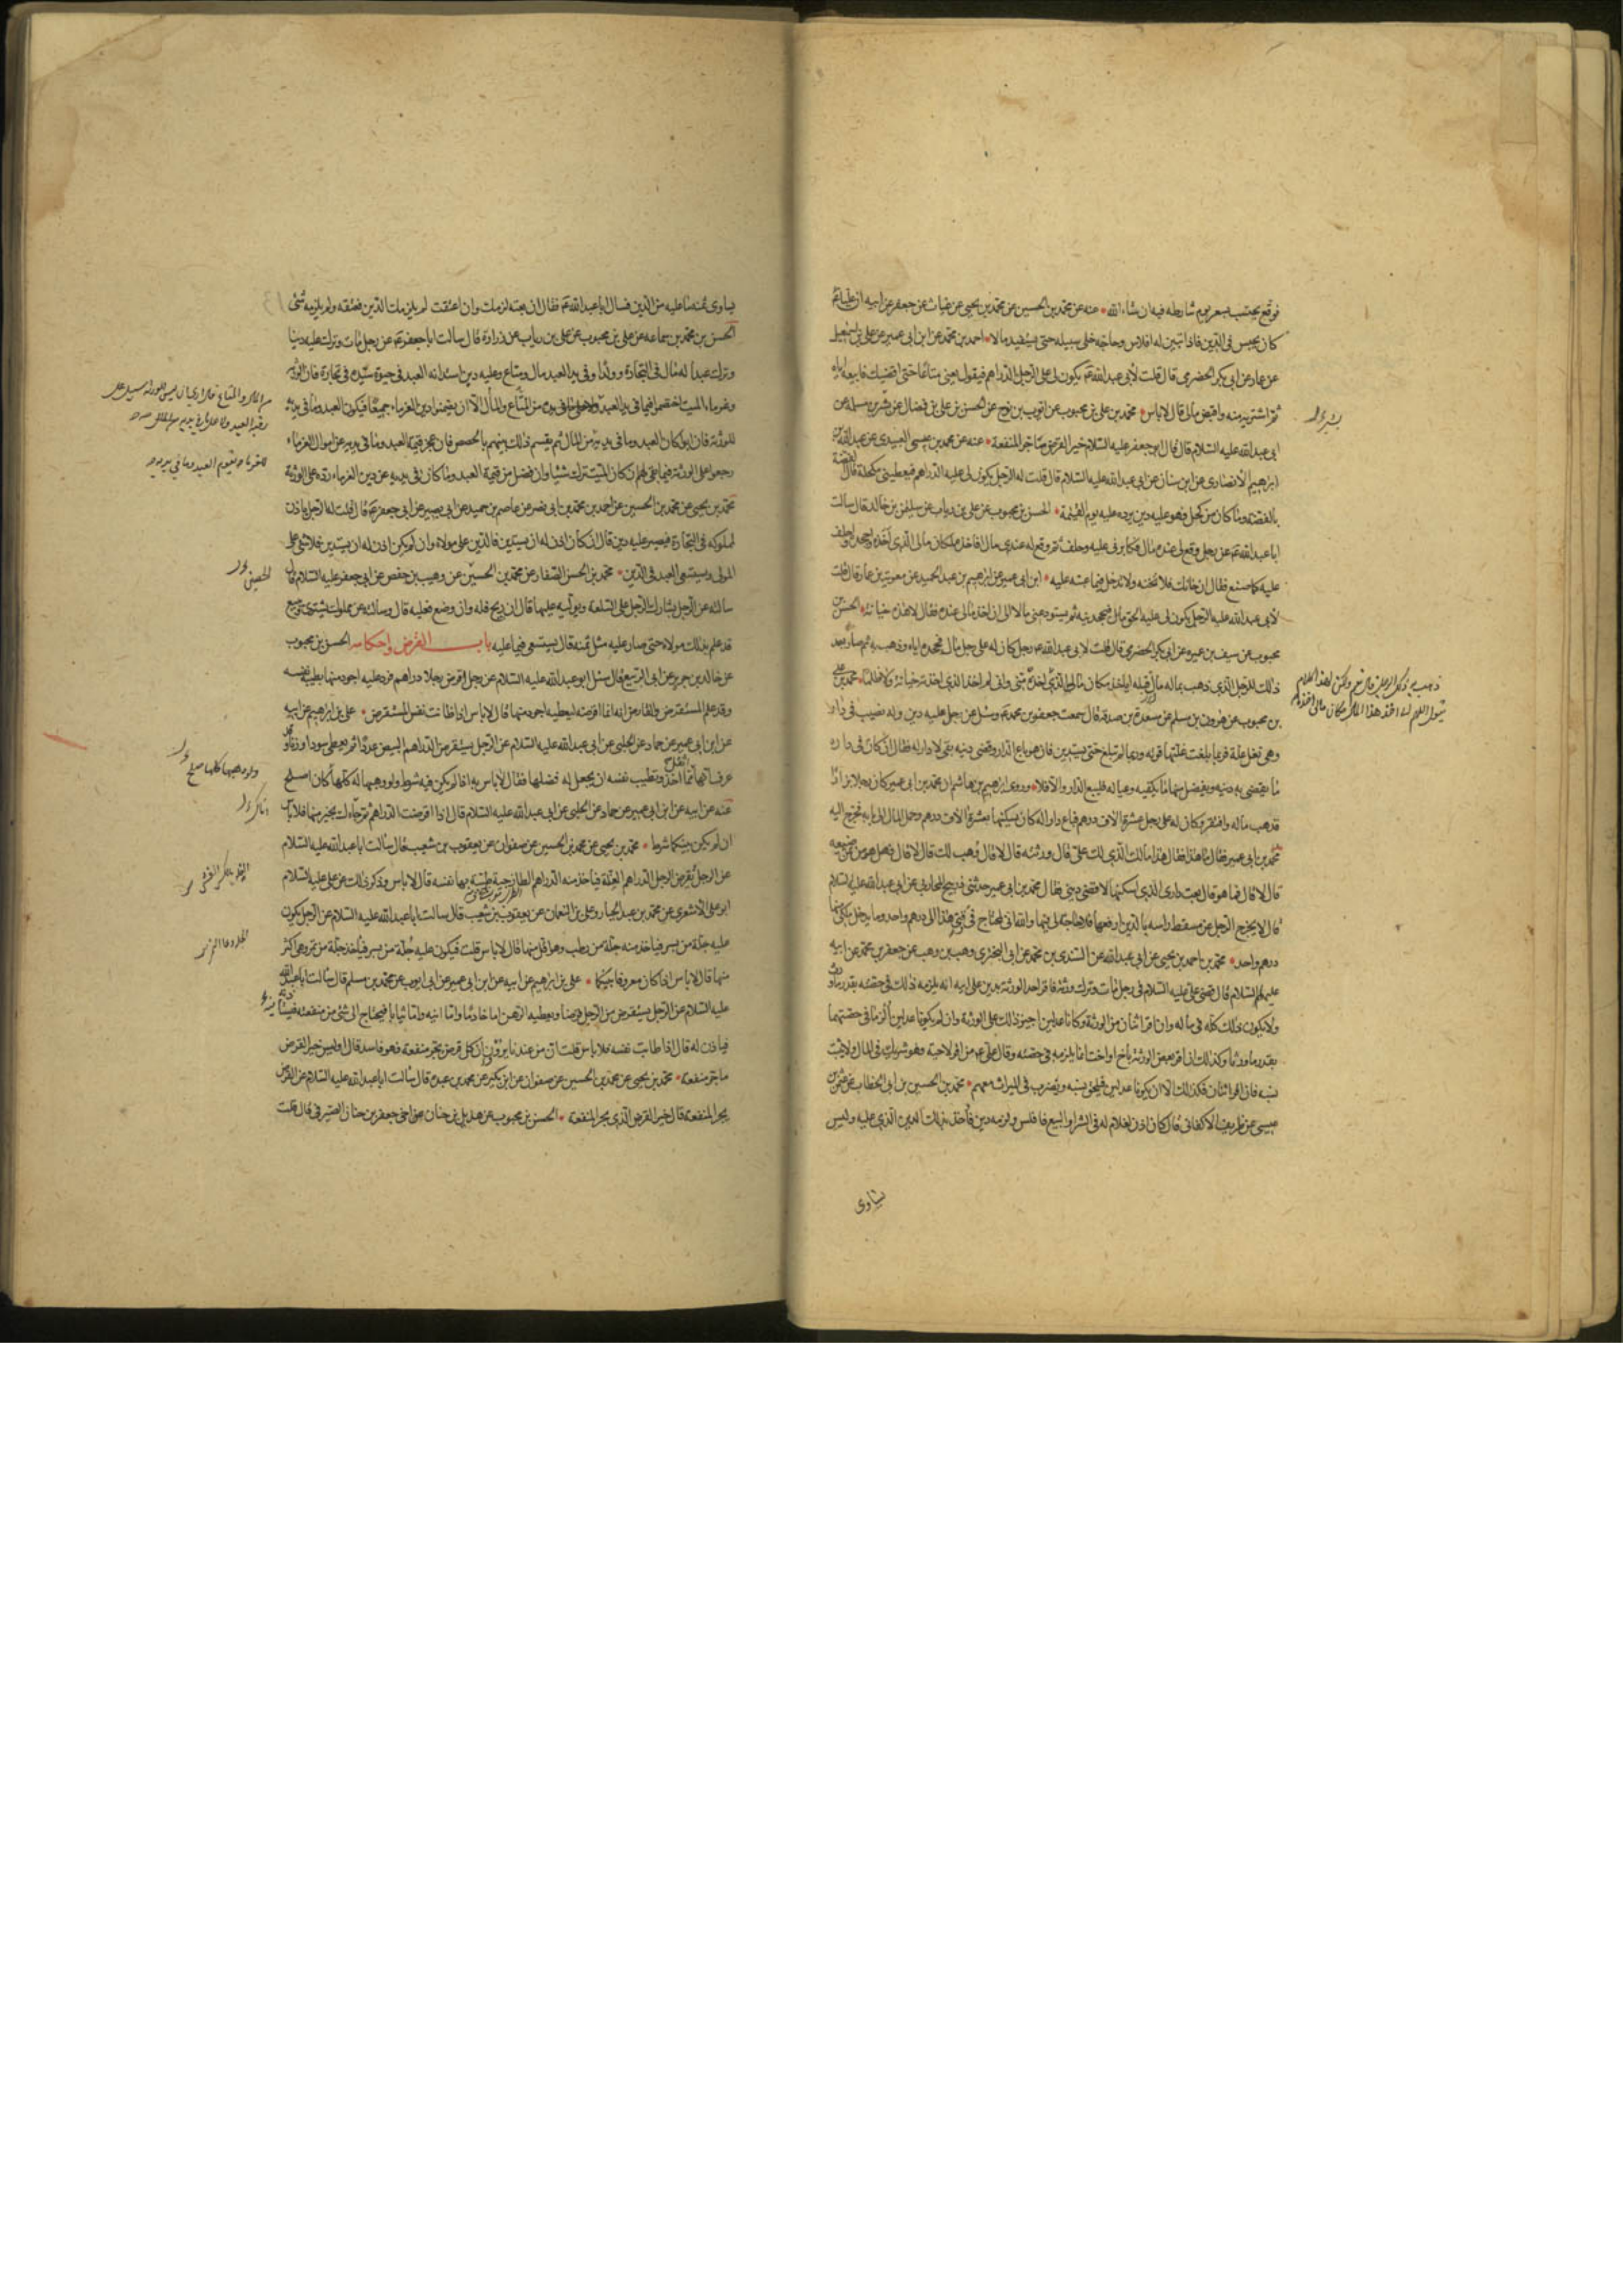 فوقع يحتسب بسعر يوم شارطه فيه ان شاء الله * عنه عن محمد بن الحسين عن محمد بن يحيى عن غياث عن جعفر عن ابيه ان عليا ع
كان يحبس في الدين فاذا تبين له افلاس وحاجة خلى سبيله حتى يستفيد مالا * احمد بن محمد عن ابن ابي عمير عن علي بن اسمعيل
عن عمار عن ابي بكر الحضرمي قال قلت لأبي عبد الله ع يكون لي على الرجل الدراهم فيقول بعني متاعا حتى اقضيك فابيعه اياه
ثم اشتريه منه واقبض مالي قال لاباس * محمد بن علي بن محبوب عن ايوب بن نوح عن الحسن بن علي بن فضال عن بشر بن مسلمة عن
ابي عبد الله عليه السلام قال قال ابو جعفر عليه السلام خير القرض ما جر المنفعة * عنه عن محمد بن عيسى العبيدي عن عبد الله بن
ابرهيم الأنصاري عن ابن سنان عن ابي عبد الله عليه السلام قال قلت له الرجل يكون لي عليه الدراهم فيعطيني مكحلة قال الفضة
بالفضة وما كان من كحل فهو عليه دين يرده عليه يوم القيمة * الحسن بن محبوب عن علي بن رياب عن سليمن بن خالد قال سالت
ابا عبد الله ع عن رجل وقع لي عنده مال فكابرني عليه وحلف ثم وقع له عندي مال افاخذه مكان مالي الذي اخذه واجحده واحلف
عليه كما صنع فقال ان خانك فلا تخنه ولا تدخل فيما عبته عليه * ابن ابي عمير عن ابرهيم بن عبد الحميد عن معوية بن عمار قال قلت
لأبي عبد الله عليه الرجل يكون لي عليه الحق فيجحدنيه ثم يستودعني مالا الي ان اخذ مالي عنده فقال لا هذه خيانة * الحسن بن
محبوب عن سيف بن عميرة عن ابي بكر الحضرمي قال قلت لابي عبد الله ع رجل كان له على رجل مال فجحده اياه وذهب به ثم صار بعد
ذلك للرجل الذي ذهب بماله مال قبله اياخذه مكان ماله الذي اخذه مني واني لم اخذ الذي اخذته خيانة ولا ظلما * محمد بن علي
بن محبوب عن هرون بن مسلم عن مسعدة بن صدقة قال سمعت جعفر بن محمد ع وسئل عن رجل عليه دين وله نصيب في دار
وهي تغل غلة فربما بلغت غلتها قوته وربما لم تبلغ حتى يستدين فان هو باع الدار وقضى دينه بقي لا دار له فقال ان كان في داره
ما يقضي به دينه ويفضل منها ما يكفيه وعياله فليبع الدار والا فلا * وروى ابرهيم بن هاشم ان محمد بن ابي عمير كان رجلا بزازا
فذهب ماله وافتقر وكان له على رجل عشرة الاف درهم فباع دارا له كان يسكنها بعشرة الاف درهم وحمل المال الى بابه فخرج اليه
محمد بن ابي عمير فقال ما هذا فقال هذا مالك الذي لك علي قال ورثته قال لا قال وهب لك قال لا قال فهل هو من ثمن ضيعة
قال لا قال فما هو قال بعت داري الذي اسكنها لاقضي ديني فقال محمد بن ابي عمير حدثني ذريح المحاربي عن ابي عبد الله عليه السلام
قال لا يخرج الرجل عن مسقط راسه بالدين ارفعها فلا حاجة لي فيها والله اني لمحتاج في وقتي هذا الى درهم واحد وما يدخل ملكي منها
درهم واحد * محمد بن احمد بن يحيى عن ابي عبد الله عن السندي بن محمد عن ابي البختري وهب بن وهب عن جعفر بن محمد عن ابيه
عليهم السلام قال قضى علي عليه السلام في رجل مات وترك ورثة فاقر احد الورثة بدين على ابيه انه يلزمه ذلك في حصته بقدر ما ورث
ولا يكون ذلك كله في ماله وان اقر اثنان من الورثة وكانا عدلين اجيز ذلك على الورثة وان لم يكونا عدلين ألزما في حصتهما
بقدر ما ورثا وكذلك ان اقر بعض الورثة باخ او اخت انما يلزمه في حصته وقال علي ع من اقر لاخيه فهو شريك في المال ولا يثبت
نسبه فان اقر اثنان فكذلك الا ان يكونا عدلين فيلحق نسبه ويضرب في الميراث معهم * محمد بن الحسين بن ابي الخطاب عن عثمن بن
عيسى عن ظريف الاكفاني قال كان اذن لغلام له في الشرا والبيع فافلس ولزمه دين فاخذ بذلك الدين الذي عليه وليس
يساوى
يساوى ثمنه ما عليه من الدين فسال ابا عبد الله ع فقال ان بعته لزمك وان اعتقت لم يلزمك الدين فعتقه ولم يلزمه شئ
الحسن بن محمد بن سماعه عن علي بن محبوب عن علي بن رياب عن زرارة قال سالت ابا جعفر ع عن رجل مات وترك عليه دينا
وترك عبدا له مال في التجارة وولدا وفي يد العبد مال ومتاع وعليه دين استدانه العبد في حيوة سيده في تجارة فان الورثة
وغرماء الميت اختصموا فيما في يد العبد من المتاع والمال الا ان يضمنوا دين الغرماء جميعا فيكون العبد وما في يديه
للورثة فان ابوا كان العبد وما في يديه من المال ثم يقسم ذلك بينهم بالحصص فان عجز قيمة العبد وما في يديه عن اموال الغرماء
رجعوا على الورثة فيما بقي لهم ان كان الميت ترك شيئا وان فضل من قيمة العبد وما كان في يديه عن دين الغرماء رده على الورثة
محمد بن يحيى عن محمد بن الحسين عن احمد بن محمد بن ابي نصر عن عاصم بن حميد عن ابي بصير عن ابي جعفر ع قال قلت له الرجل ياذن
لمملوكه في التجارة فيصير عليه دين قال ان كان اذن له ان يستدين فالدين على مولاه وان لم يكن اذن له ان يستدين فلا شئ على
المولى ويستسعى العبد في الدين * محمد بن الحسن الصفار عن محمد بن الحسين عن وهيب بن حفص عن ابي جعفر عليه السلام قال
سالته عن الرجل يشارك الرجل على السلعة ويوليه عليها قال ان ربح فله وان وضع فعليه قال وسالته عن مملوك يشتري ويبيع
قد علم بذلك مولاه حتى صار عليه مثل ثمنه قال يستسعى فيما عليه باب القرض واحكامه الحسن بن محبوب
عن خالد بن جرير عن ابي الربيع قال سئل ابو عبد الله عليه السلام عن رجل اقرض رجلا دراهم فرد عليه اجود منها بطيب نفسه
وقد علم المستقرض والقارض انه انما اقرضه ليعطيه اجود منها قال لاباس اذا طابت نفس المستقرض * علي بن ابرهيم عن ابيه
عن ابن ابي عمير عن حماد عن الحلبي عن ابي عبد الله عليه السلام عن الرجل يستقرض الدراهم البيض عددا ثم يعطي سودا وزنا وقد
عرف انها اثقل مما اخذ وتطيب نفسه ان يجعل له فضلها فقال لاباس به اذا لم يكن فيه شرط ولو وهبها له كلها كان اصلح
عنه عن ابيه عن ابن ابي عمير عن حماد عن الحلبي عن ابي عبد الله عليه السلام قال اذا اقرضت الدراهم ثم جاءك بخير منها فلا باس
ان لم يكن بينكما شرط * محمد بن يحيى عن محمد بن الحسين عن صفوان عن يعقوب بن شعيب قال سالت ابا عبد الله عليه السلام
عن الرجل يقرض الرجل الدراهم الغلة فياخذ منه الدراهم الطازجية طيبة بها نفسه قال لاباس وذكر ذلك عن علي عليه السلام
ابو علي الاشعري عن محمد بن عبد الجبار وعلي بن النعمان عن يعقوب بن شعيب قال سالت ابا عبد الله عليه السلام عن الرجل يكون
عليه جلة من بسر فياخذ منه جلة من رطب وهو اقل منها قال لاباس قلت فيكون عليه جلة من بسر فياخذ جلة من تمر وهي اكثر
منها قال لاباس اذا كان معروفا بينكما * علي بن ابرهيم عن ابيه عن ابن ابي عمير عن ابي ايوب عن محمد بن مسلم قال سالت ابا عبد الله
عليه السلام عن الرجل يستقرض من الرجل قرضا ويعطيه الرهن اما خادما واما انية واما ثيابا فيحتاج الى شئ من منفعته فيستاذنه
فياذن له قال اذا طابت نفسه فلا باس قلت ان من عندنا يروون ان كل قرض يجر منفعة فهو فاسد قال اوليس خير القرض
ما جر منفعة * محمد بن يحيى عن محمد بن الحسين عن صفوان عن ابن بكير عن محمد بن عبدة قال سالت ابا عبد الله عليه السلام عن القرض
يجر المنفعة قال خير القرض الذي يجر المنفعة * الحسن بن محبوب عن هذيل بن حنان عن اخي جعفر بن حنان الصيرفي قال قلت